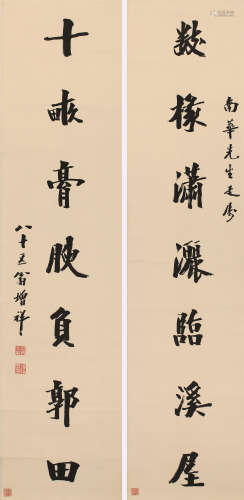 南華先生正屬
數椽瀟灑臨溪屋
十畝膏腴負郭田
八十五翁增祥